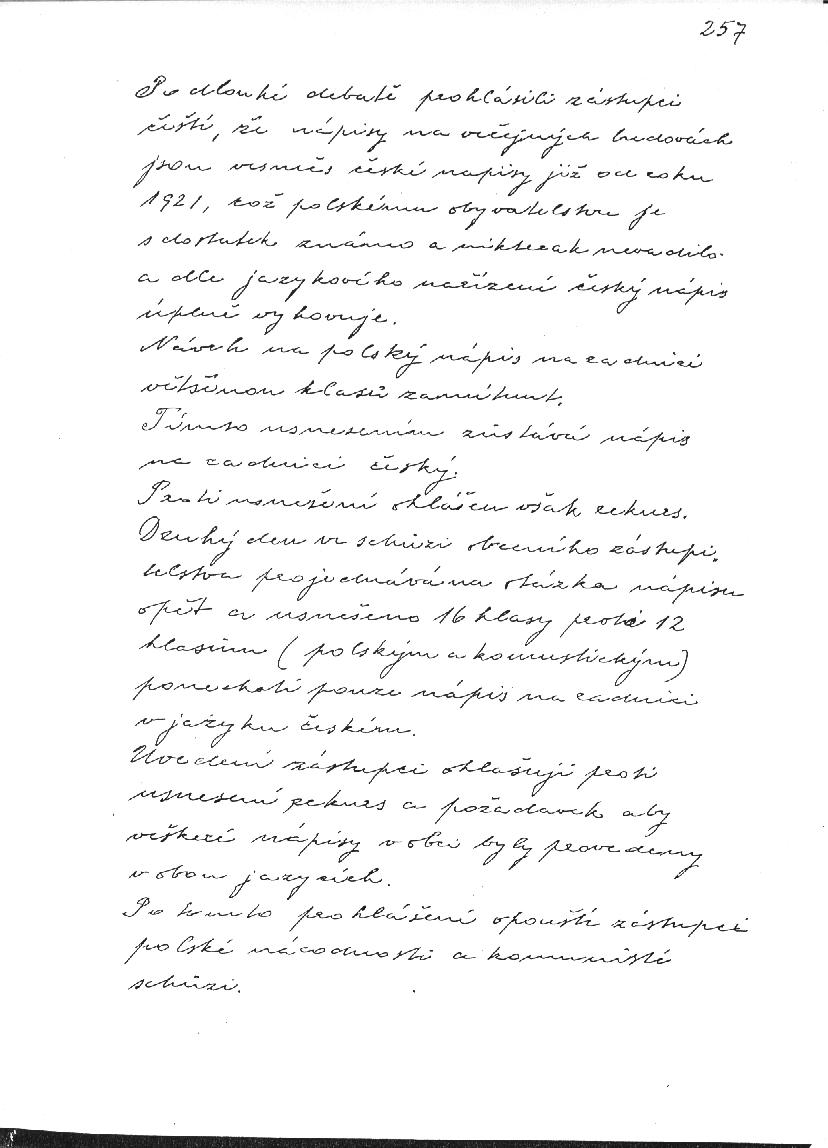 257
Po dlouhé debatě prohlásili zástupci
čeští, že nápisy na veřejných budovách
jsou vesměs české nápisy již od roku
1921, což polskému obyvatelstvu je
s dostatek známo a nikterak nevadilo.
a dle jazykového nařízení český nápis
úplně vyhovuje.
Návrh na polský nápis na radnici
většinou hlasů zamítnut.
Tímto usnesením zůstává nápis
na radnici český.
Proti usnešení ohlášen však rekurs.
Druhý den ve schůzi obecního zástupi„
telstva projednávána otázka nápisu
opět a usnešeno 16 hlasy proti 12
hlasům (polským a komustickým)
ponechati pouze nápis na radnici
v jazyku českém.
Uvedení zástupci ohlašují proti
usnesení rekurs a požadavek aby
veškeré nápisy v obci byly provedeny
v obou jazycích.
Po tomto prohlášení opouští zástupci
polské národnosti a komunisté
schůzi.